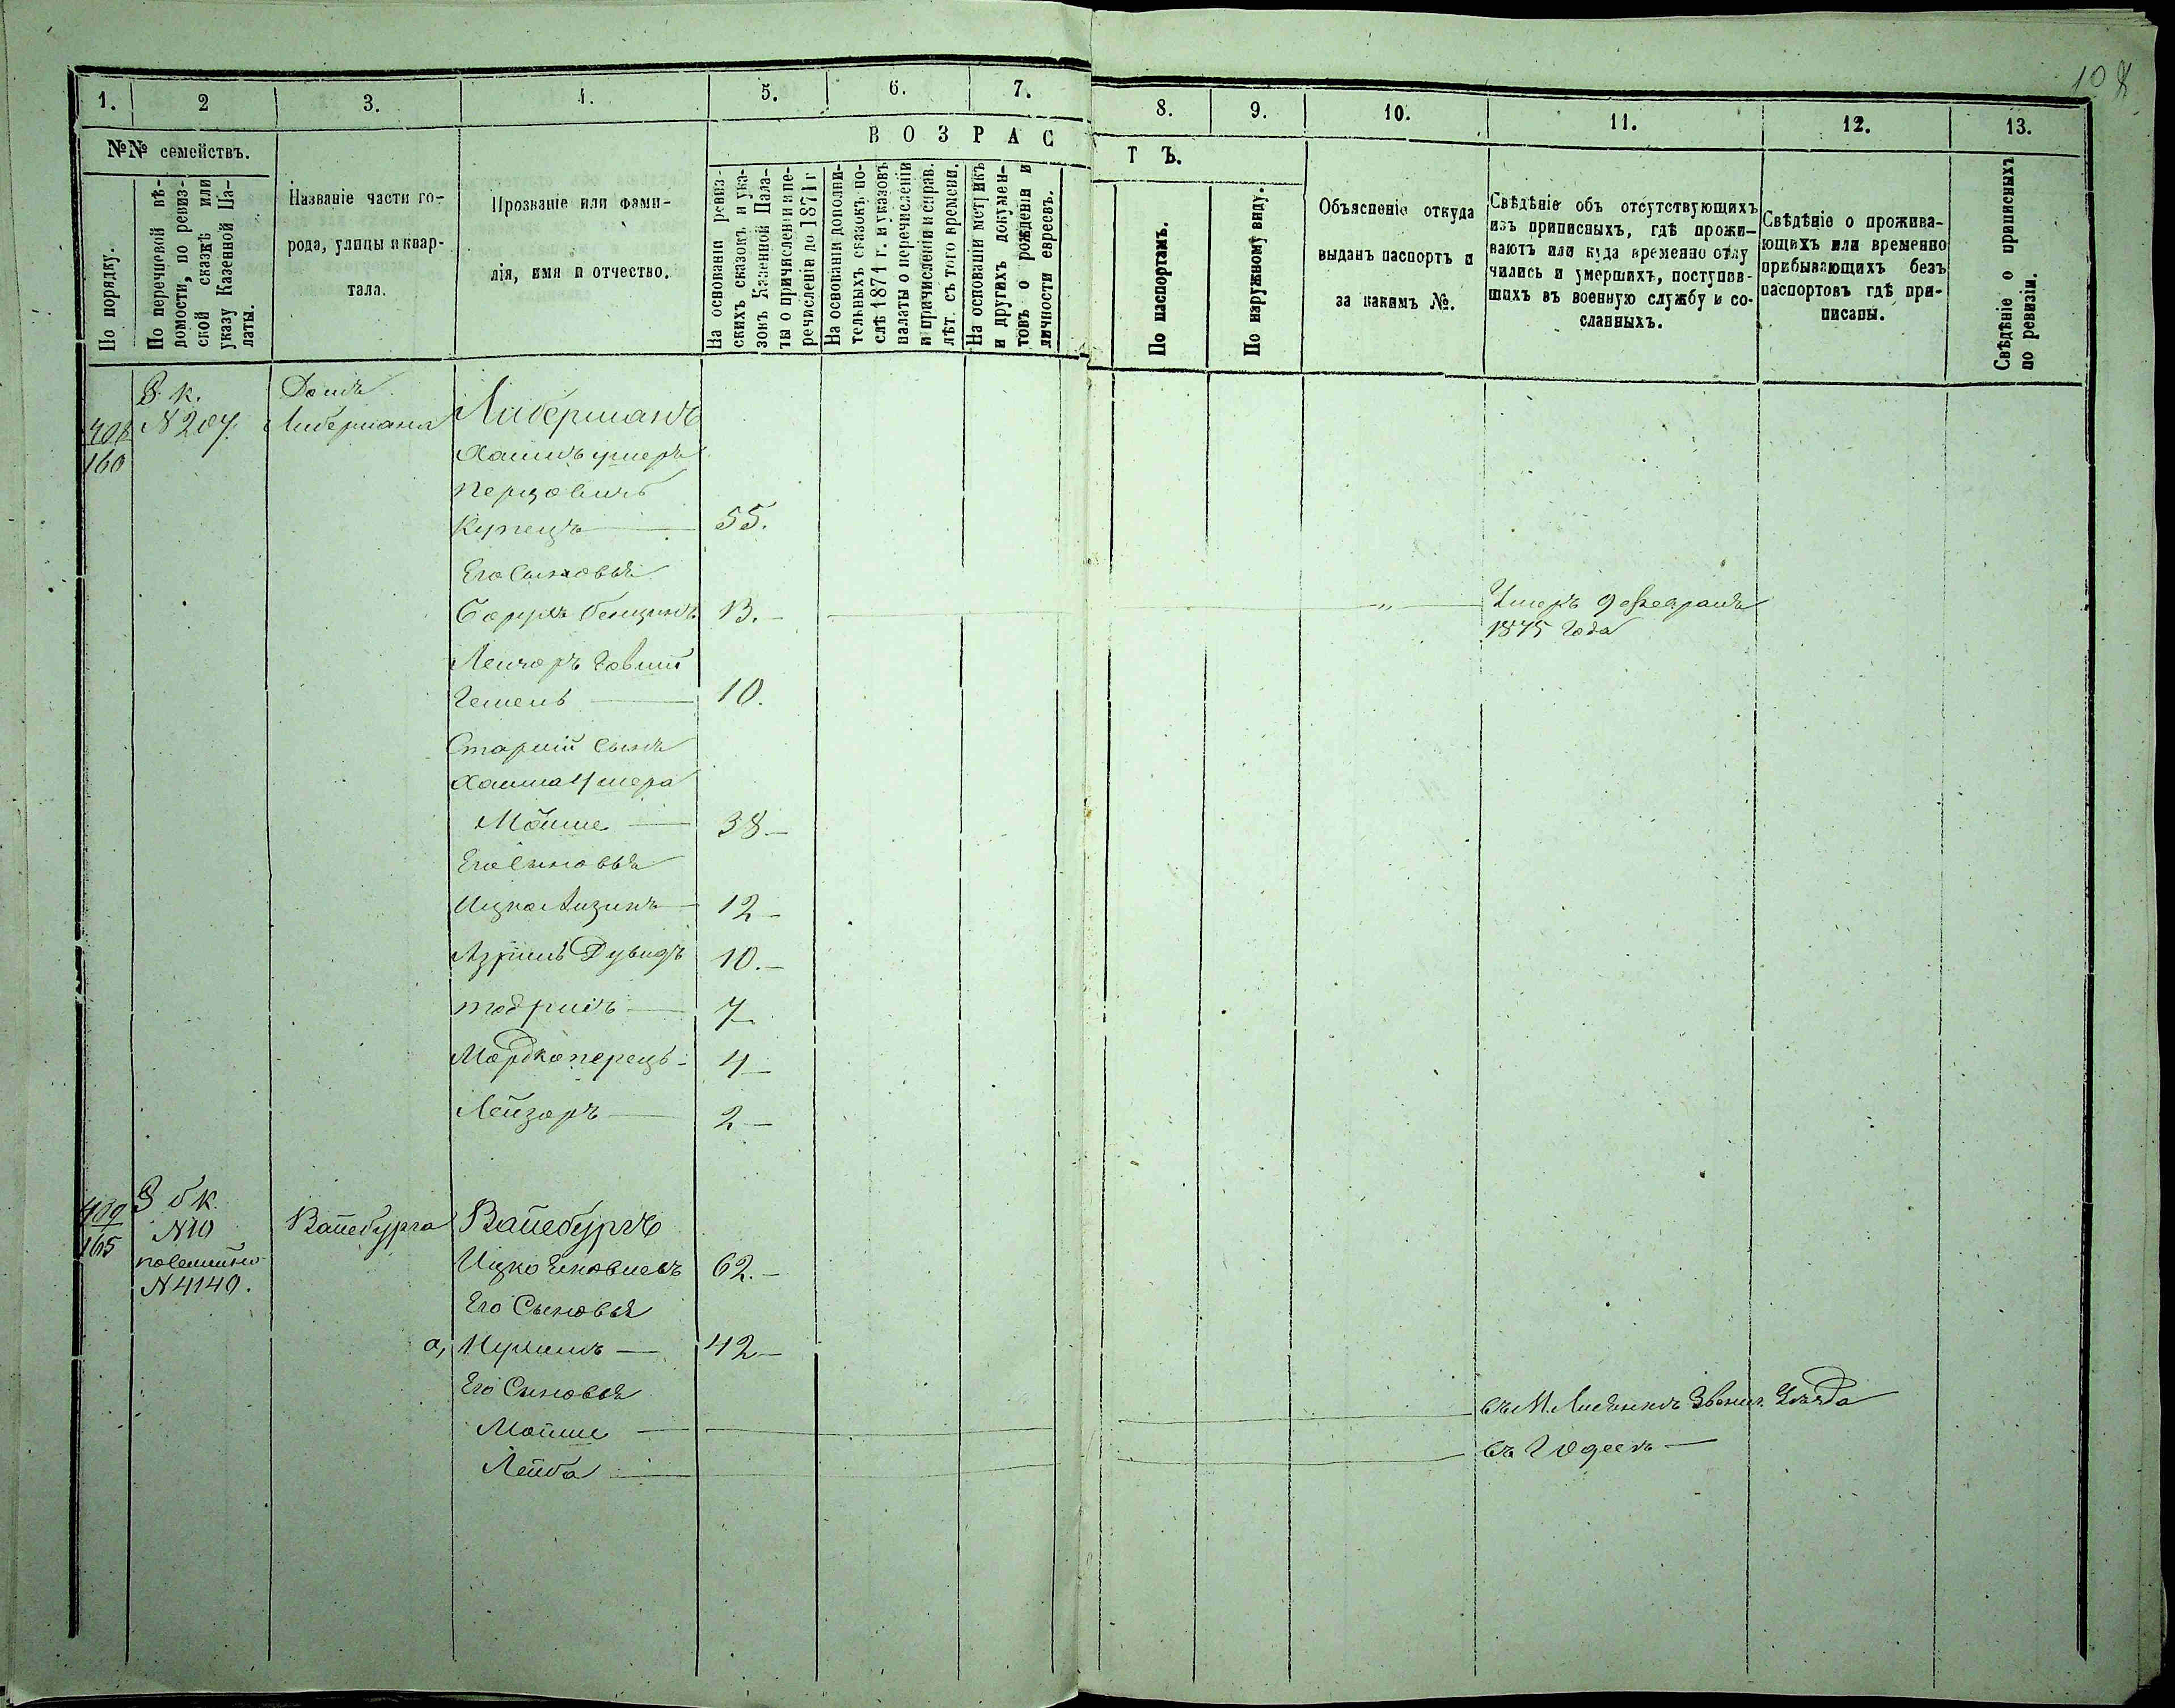 108
1.
2
3.
4.
5.
6.
7.
8.
9.
10.
11.
12.
13.
№№ семействъ.
По порядку.
По перечневой вѣ-
домости, по ревиз-
ской сказкѣ или
указу Казенной Па-
латы.
Названіе части го-
рода, улицы и квар-
тала.
Прозваніе или фами-
лія, имя и отчество.
ВОЗРАС
ТЪ.
На основаніи ревиз-
скихъ сказокъ и ука-
зовъ Казенной Пала-
ты о причисленіи и пе-
речисленіи до 1871 г
На основаніи дополни-
тельныхъ сказокъ по-
слѣ 1871 г. и указовъ
палаты о перечисленіи
и причисленіи и справ.
лѣт. съ того времени.
На основаніи метрикъ
и другихъ докумен-
товъ о рожденіи и
личности евреевъ.
По паспортамъ.
По наружному виду.
Объясненіе откуда
выданъ паспортъ и
за какимъ №.
Свѣдѣніе объ отсутствующихъ
изъ приписныхъ, гдѣ прожи-
ваютъ или куда временно отлу
чились и умершихъ, поступив-
шихъ въ военную службу и со-
сланныхъ.
Свѣдѣніе о прожива-
ющихъ или временно
прибывающихъ безъ
паспортовъ гдѣ при-
писаны.
Свѣдѣніе о приписныхъ
по ревизіи.
408
160
З. к.
N 207.
Домъ
Либермана
Либерманъ
Хаимъ умеръ
Перцовичъ
Купецъ 55.
Его Сыновья
Борухъ Бенционъ 13. — " — Умеръ 9 Февраля
1875 года
10.
Старшій Сынъ
Хаима Умера
Мойше 38 —
Его Сыновья
Ицко Айзикъ 12 —
Азріиль Дувидъ 10. —
Тодрисъ 7
Мордко перецъ 4
Лейзоръ 2 —
409
165
З б к.
N 10
посемейно
N 4140.
Вайсбурга
Вайсбургъ
Ицко 62. —
Его Сыновья
а, Нухимъ — 42 —
Его Сыновья
Мойше — въ М. Лисянкѣ Звениг. Уѣзда
Лейба — въ Г Одессѣ —